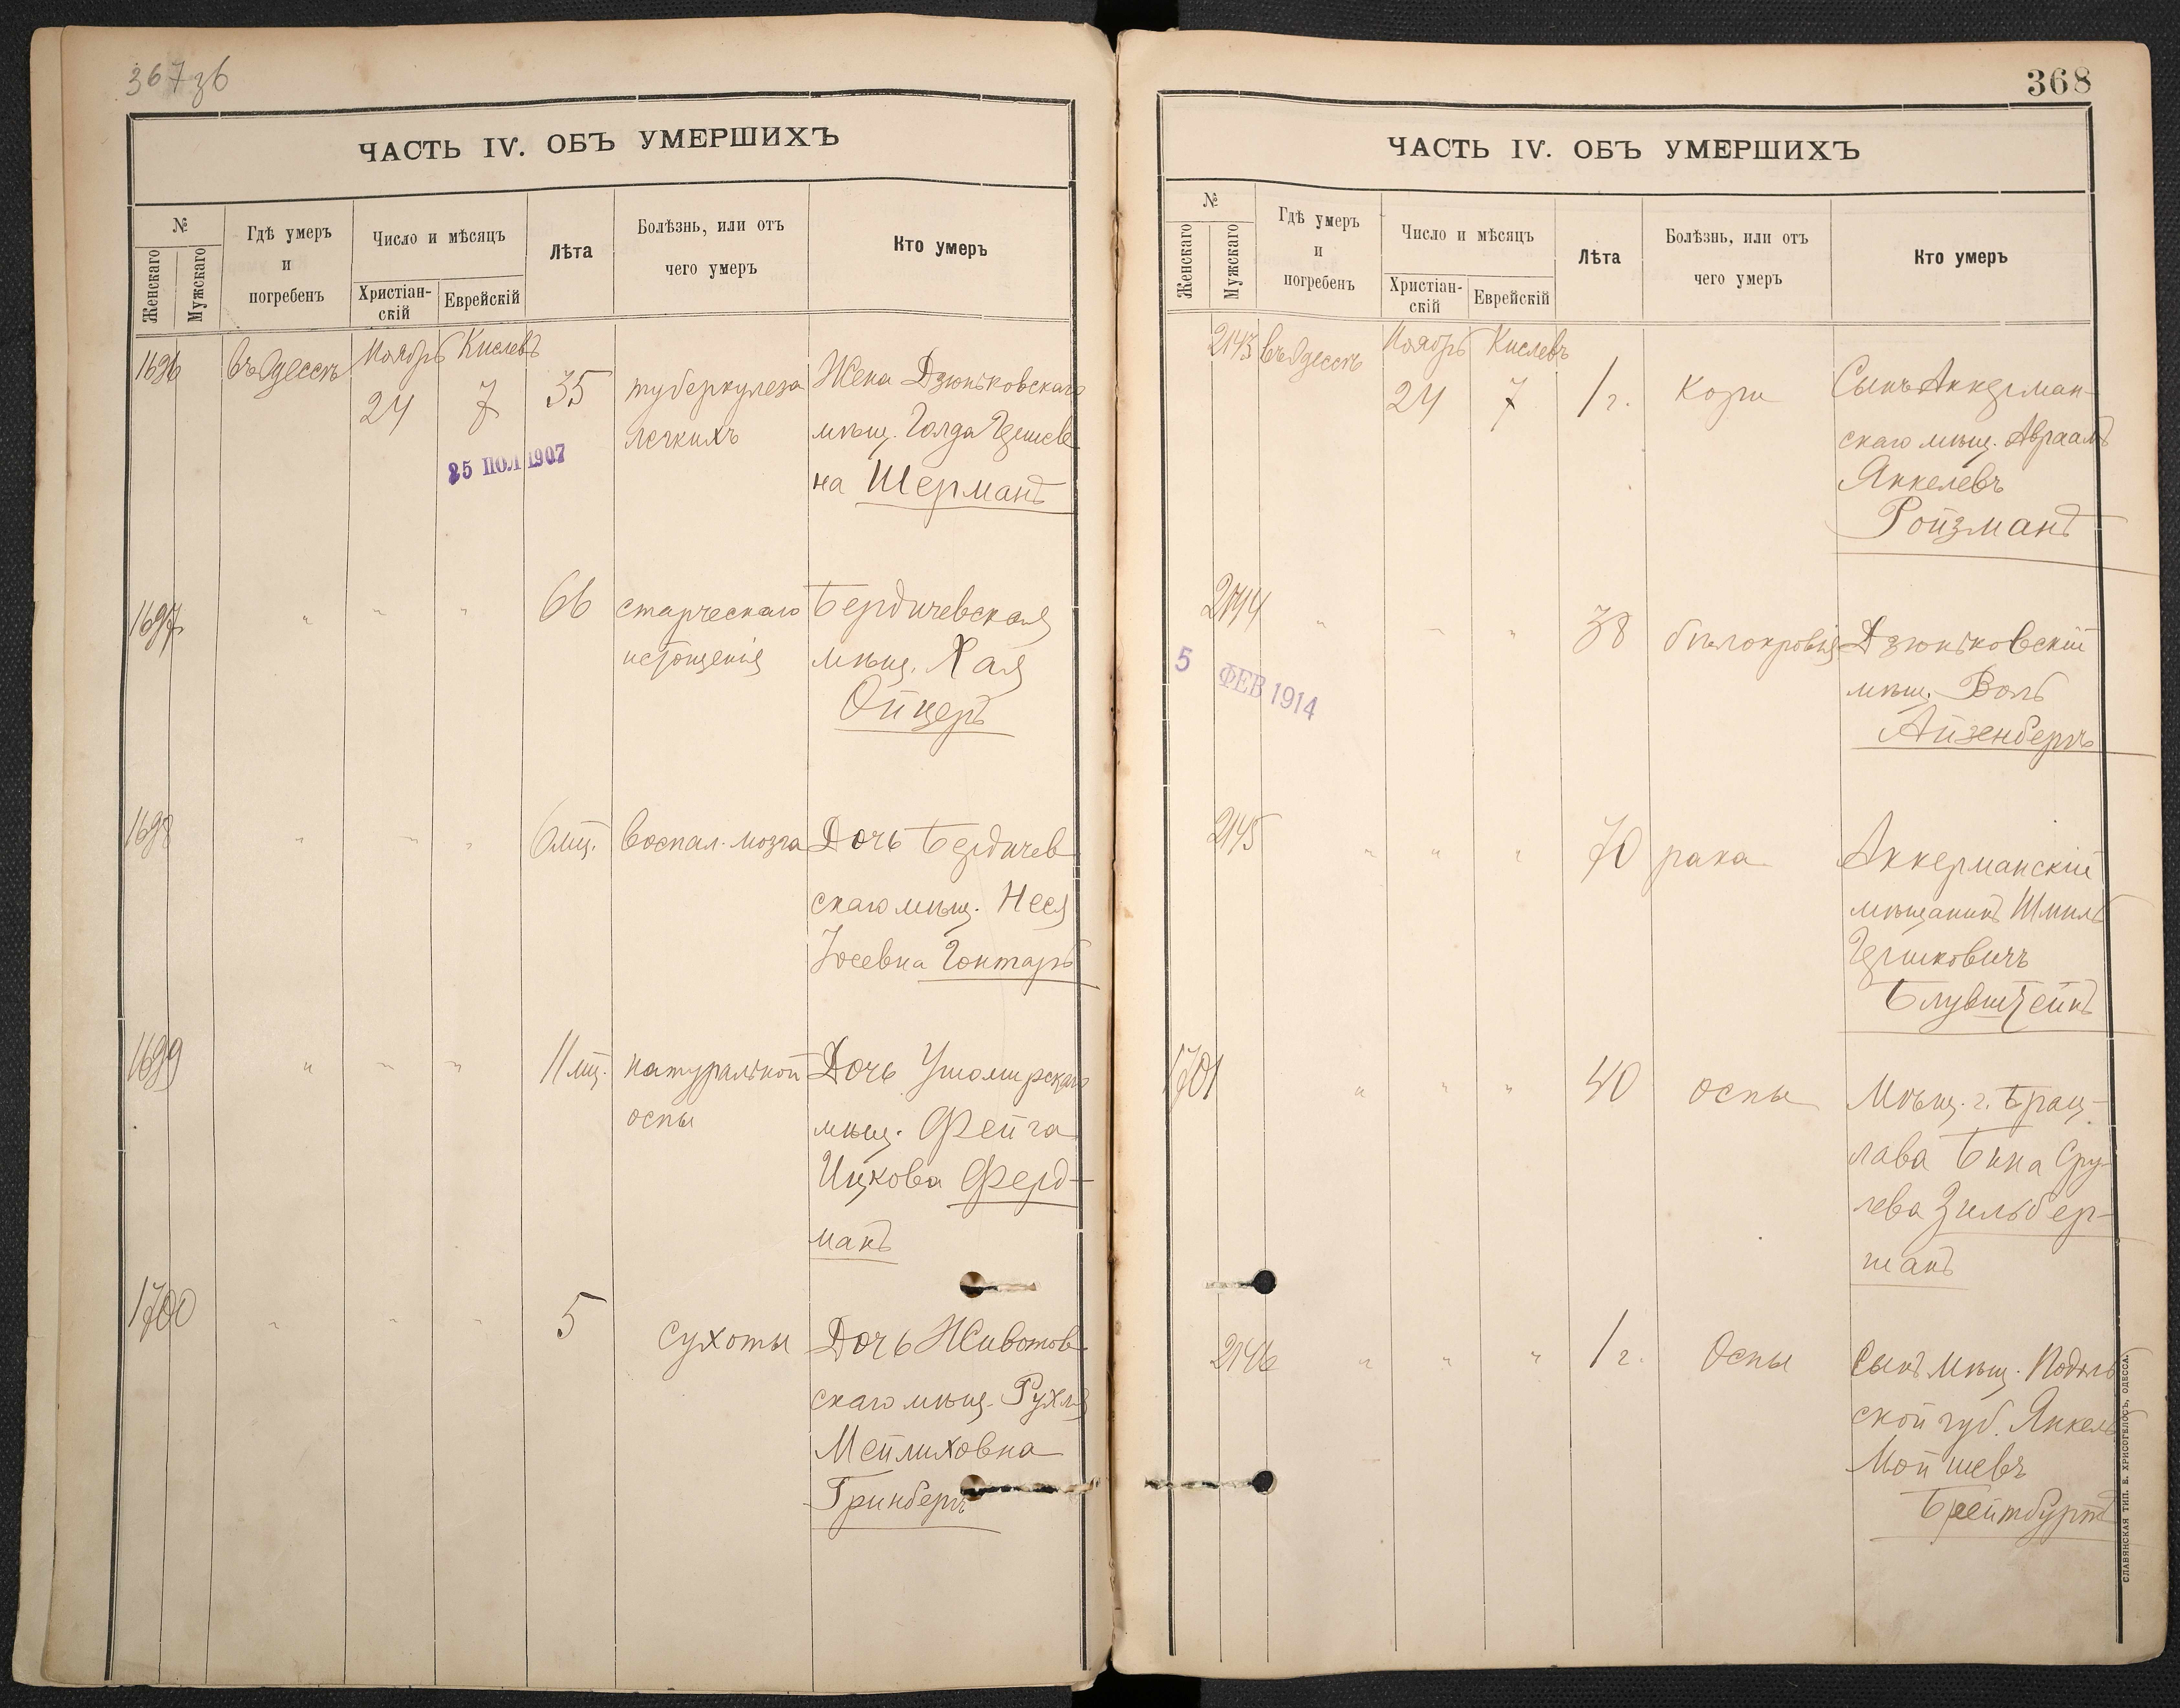 367зб
ЧАСТЬ IV. ОБЪ УМЕРШИХЪ
№
Женскаго
Мужскаго
Гдѣ умеръ
и
погребенъ
Число и мѣсяцъ
Христіан-
скій
Еврейскій
Лѣта
Болѣзнь, или отъ
чего умеръ
Кто умеръ
1696 въ Одессѣ Ноябрь Кислевъ
24 7 35 туберкулеза Жена Дзюньковскаго
легкихъ мѣщ. Голда
на Шерманъ
25 ПОЛ 1907
1697 " " " 66 старческаго Бердичевская
истощенія мѣщ. Хая
Ойцеръ
1698 " " " 6 мц. воспал. мозга Дочь Бердичев
скаго мѣщ. Неся
Іосевна Гонтарь
1699 " " " 11 мц. натуральной Дочь Ушомирскаго
оспы мѣщ. Фейга
Ицкова Ферд-
манъ
1700 " " " 5 сухоты Дочь Животов
скаго мѣщ. Рухля
Мейлиховна
Гринбергъ
368
ЧАСТЬ IV. ОБЪ УМЕРШИХЪ
№
Женскаго
Мужскаго
Гдѣ умеръ
и
погребенъ
Число и мѣсяцъ
Христіан-
скій
Еврейскій
Лѣта
Болѣзнь, или отъ
чего умеръ
Кто умеръ
2143 въ Одессѣ Ноябрь Кислевъ
24 7 1 г. Кори Сынъ Аккерман-
скаго мѣщ. Авраамъ
Янкелевъ
Ройзманъ
2144 " " " 38 бѣлокровія Дзюньковскій
мѣщ. Волъ
Айзенбергъ
5 ФЕВ 1914
2145 " " " 70 рака Аккерманскій
мѣщанинъ Шмиль
Гершковичъ
Блувштейнъ
1701 " " " 40 оспы Мѣщ. г. Брац-
лава Бина Сру-
лева Зильбер-
манъ
2146 " " " 1 г. Оспы Сынъ мѣщ. Подоль
ской губ. Янкель
Мойшевъ
Брейтбурдъ
СЛАВЯНСКАЯ ТИП. Е. ХРИСОГЕЛОСЪ, ОДЕССА.